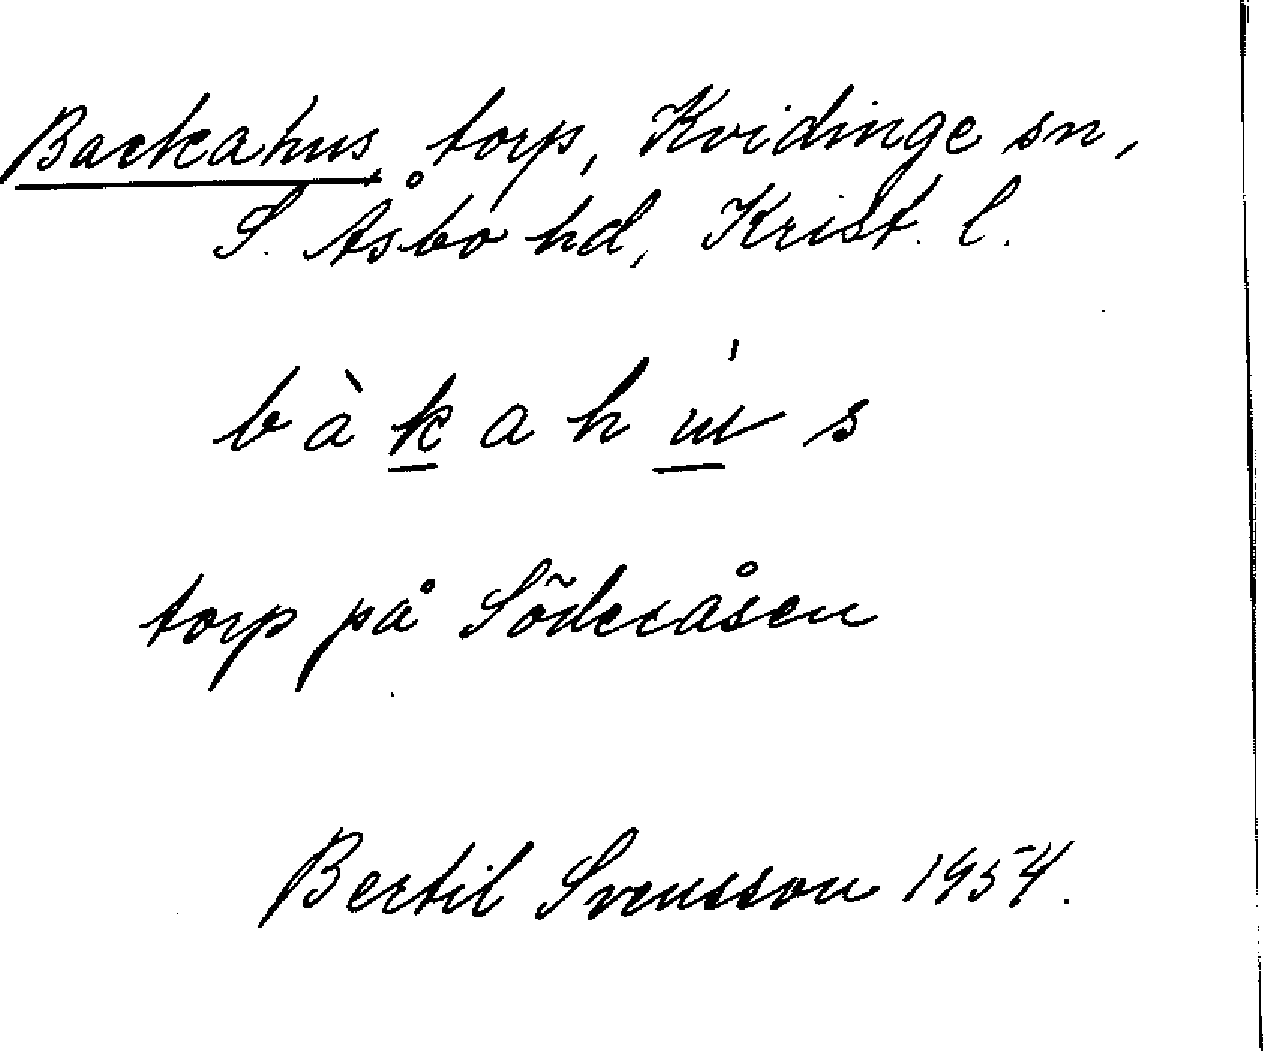 Backahus, torp, Kvidinge sn,
S. Åsbo hd, Krist. l.
bàkahu̍s
torp på Söderåsen
Bertil Svensson 1954.